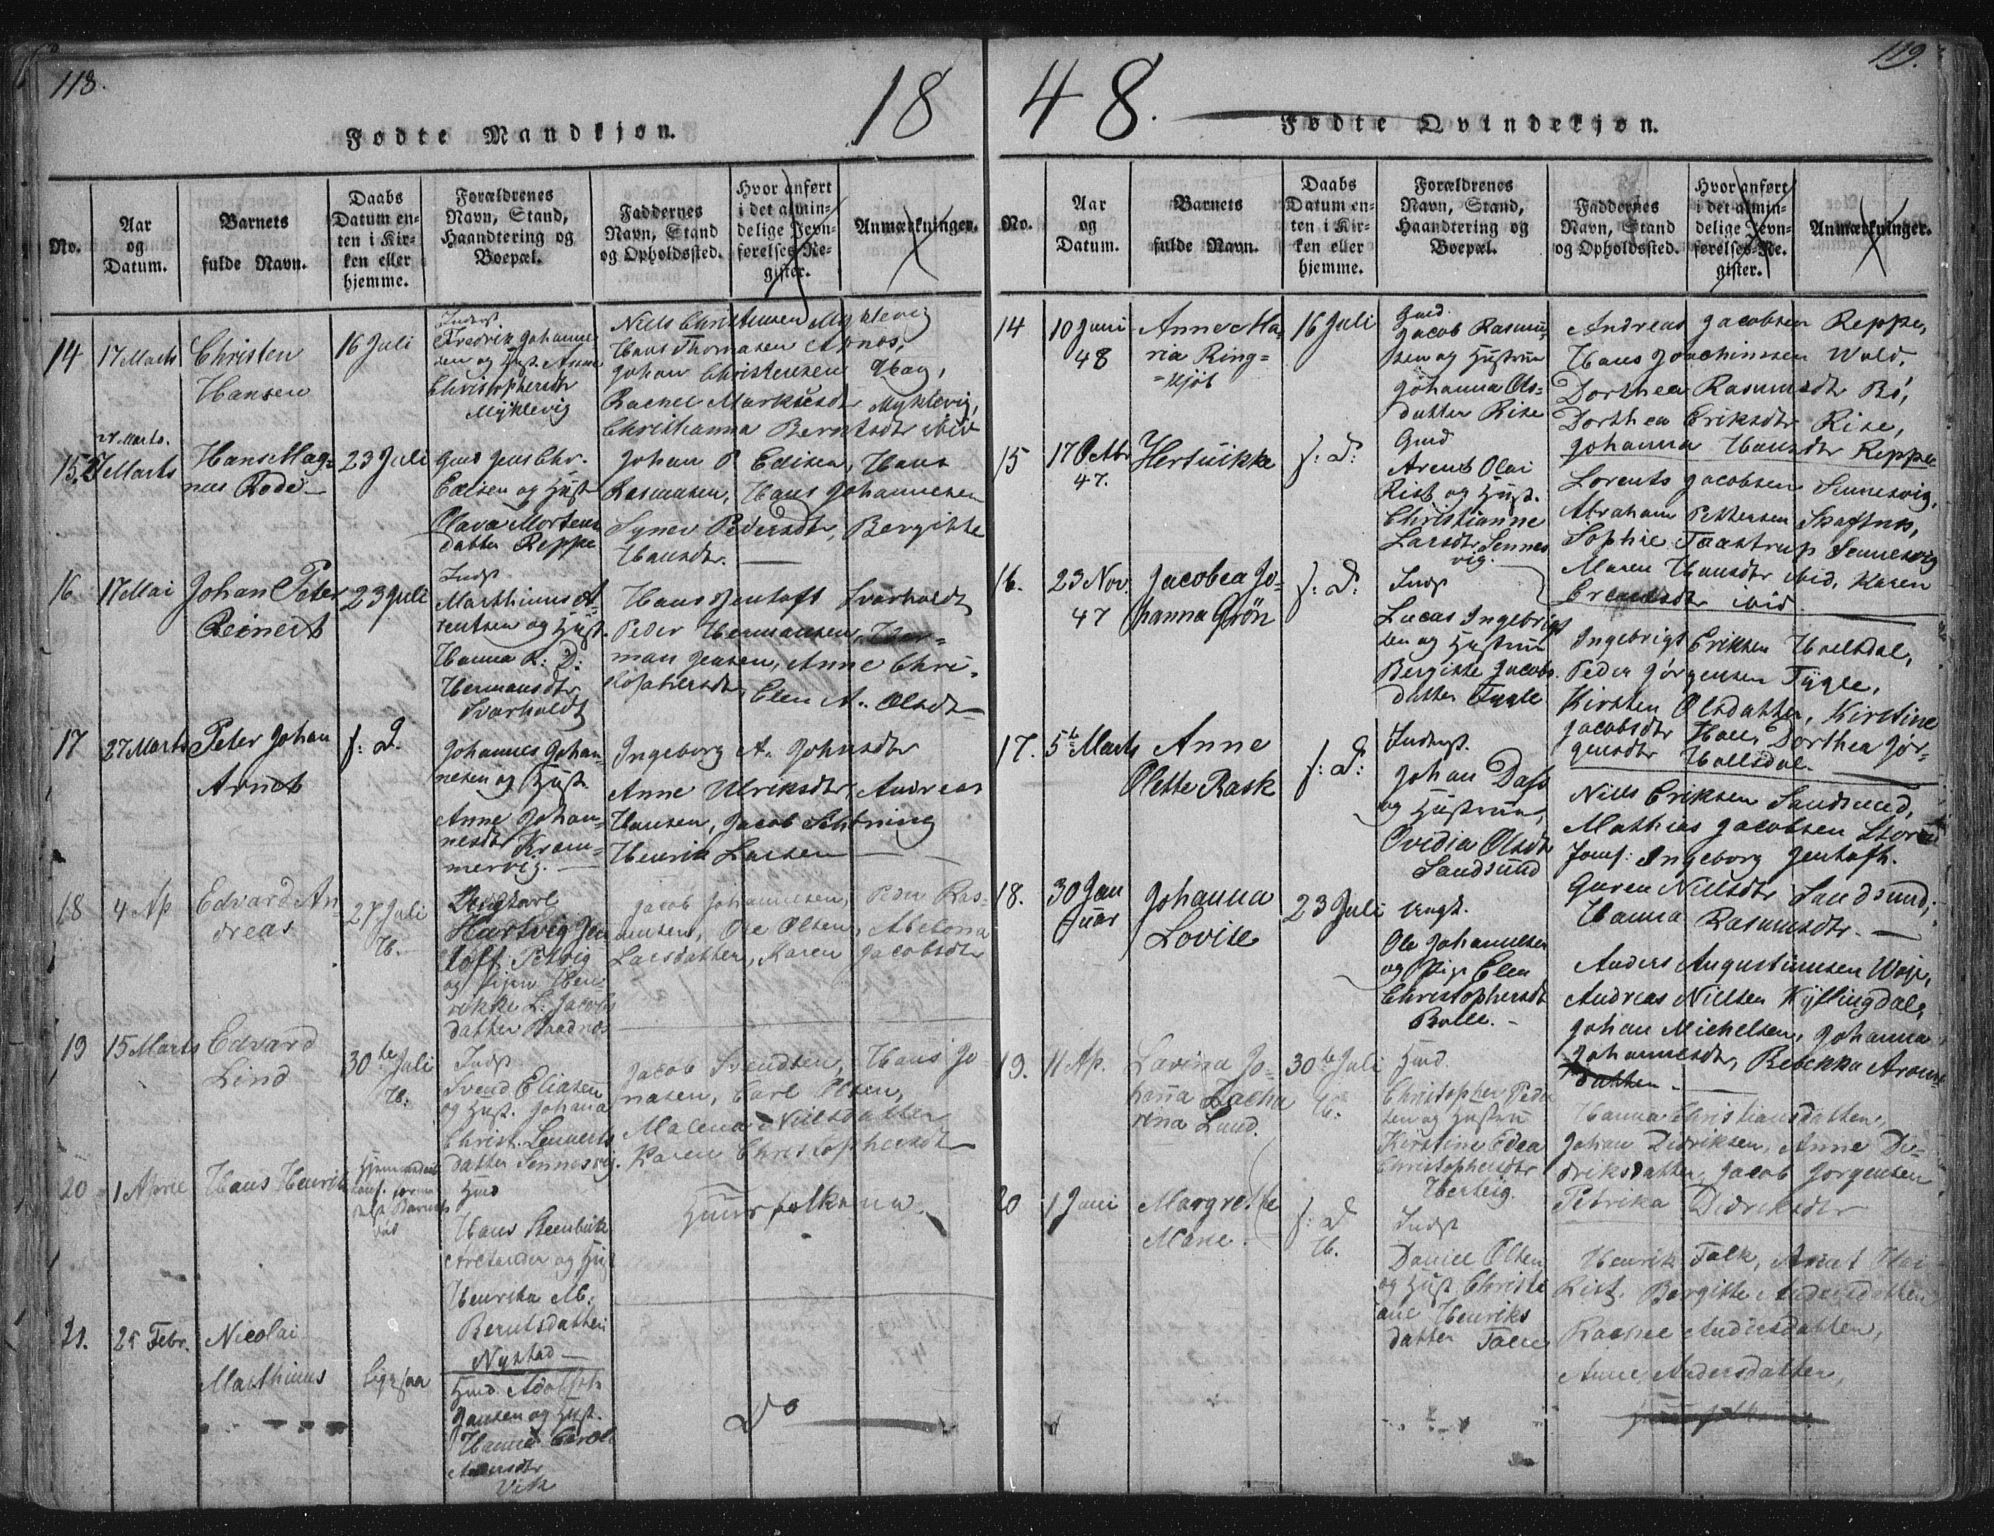 118.
18
48.
119.
Fødte Mandkjøn.
No.
Aar og Datum.
Barnets fulde Navn.
Daabs Datum enten i Kirken eller hjemme.
Forældrenes Navn, Stand, Haandtering og Boepæl.
Faddernes Navn, Stand og Opholdssted.
Hvor anført i det almindelige Jevnførelses-Register.
Anmærkninger.
14
17 Marts
Christen
Hansen
16 Juli
Indst
Fredrik Johanne-
sen og Hust. Anne
Christophersdtr
Myklevig
Niels Christensen Myklevig
Hans Thomasen Arnøs,
Johan Christensen Hag,
Rachel Markusdtr Myklevig,
Christianna Berntsdtr ibid
15.
27 Marts.
Hans Mag-
nus Rode
23 Juli
Gmd Jens Chr.
Edisen og Hust
Olava Mortens
datter Reppe
Johan P Edisen, Hans
Rasmusen, Hans Johannesen
Synev Pedersdtr, Bergitte
Hansdtr.
16
17 Mai
Johan Peter
Reinert
23 Juli
Indst
Marthinus A-
rentsen og Hust.
Hanna K: D:
Hermansdtr
Svarholdt
Hans Jentoft Svarholdt
Peder Hermansen, Her-
man Jensen, Anne Chri-
stophersdtr, Elen A. Olsdtr
17
27 Marts
Peter Johan
Arndt
f: D.
Johannes Johan-
nesen og Hust.
Anne Johan-
nesdtr Kram-
mervig.
Ingeborg A. Johnsdtr
Anne Ulriksdtr Andreas
Hansen, Jacob Schtning
Henrik Larsen
18
4 Ap
Edvard An-
dreas
27 Juli
H.
Ungkarl
Hartvig Jen
toft Petvig
og Pigen Hen-
rikke L. Jacobs
datter Saadnøs
Jacob Johannesen, Peder Ras-
musen, Ole Olsen, Abelona
Larsdatter, Karen Jacobsdtr
19
15 Marts
Edvard
Lind
30te Juli
H.
Indst
Svend Eliasen
og Hust. Johana
Christ. Lennerts
datter Sennesvig.
Jacob Svendsen, Hans Jo-
nasen, Carl Olsen,
Malena Nielsdatter
Karen Christophersdtr
20
1 April
Hans Henrik
Hjemmedøbt
Hmd
Hans Steenbuk
Alexander og Hust
Henrika M.
Berntsdatter
Nystad
Huusfolkene.
21.
25 Febr.
Nicolai
Marthinus
ligesaa
Hmd. Adolph
Jansen og Hust.
Hanna Carol
Andersdtr
Vik
Do
Fødte Qvindekjøn.
No.
Aar og Datum.
Barnets fulde Navn.
Daabs Datum enten i Kirken eller hjemme.
Forældrenes Navn, Stand, Haandtering og Boepæl.
Faddernes Navn, Stand og Opholdssted.
Hvor anført i det almindelige Jevnførelses-Register.
Anmærkninger.
14
10 Juni
48
Anne Ma-
ria Ring-
=kjøb
16 Juli
Gmd.
Jacob Rasmu-
sen og Hustrue
Johanna Ols-
datter Rise
Andreas Jacobsen Reppe,
Hans Joachimsen Wold,
Dorthea Rasmusdtr Bø,
Dorthea Eriksdtr Rise,
Johanna Hansdtr Reppe
15
17 Octbr
47.
Hertvikke
f: D:
Gmd
Arent Olai
Rist og Hust.
Christianne
Larsdtr Sennes
vig.
Lorents Jacobsen Sennesvig,
Abraham Pettersen Skaftnøs,
Sophie Taastrup Sennesvig
Maren Hansdtr ibid, Karen
ibid.
16.
23 Nov.
47
Jacobea Jo-
hanna Grön
f: D:
Indst
Lucas Ingebrigt
sen og Hustrue
Bergitte Jacobs
datter Tygle
Ingebrigt Eriksen Holsdal,
Peder Jørgensen Tygle,
Kirsten Olsdatter, Kirstine
Jacobsdtr Hol, Dorthea Jør-
gensdtr Holsdal.
17.
5te Marts
Anne
Olette Rask
f: D:
Inderst.
Johan Dass
og Hustrue,
Ovidia Olsdtr
Sandsund
Niels Eriksen Sandsund,
Mathias Jacobsen Store
Jomf: Ingeborg Jentoft.
Guren Nielsdtr Sandsund,
Hanna Rasmusdtr.
18.
30 Jan
uar
Johanna
Lovise
23 Juli
Ungk.
Ole Johannesen
og Pige Elen
Christophersdtr
Bolle.
Anders Augustinusen Wolp,
Andreas Nielsen Kyflingdal,
Johan Michelsen, Johanna
Johannesdtr, Rebekka Arons
datter
19.
11 Ap.
Lavina Jo-
hanna Zacha
rina Lund.
30te Juli
H.
Hmd.
Christopher Peder
sen og Hustrue
Kirstine Edea
Christophersdtr
Herteig.
Hanna Christiansdatter,
Johan Didriksen, Anne Di-
driksdatter, Jacob Jørgensen
Petrika Didriksdtr
20
1 Juni
Margrethe
Marie.
f: D
H.
Indst
Daniel Olsen
og Hust Christi
ane Henriks
datter Falck
Henrik Falk, Arnt Olai
Rist, Bergitte Andersdatter
Rachel Andersdatter,
Anne Andersdatter,